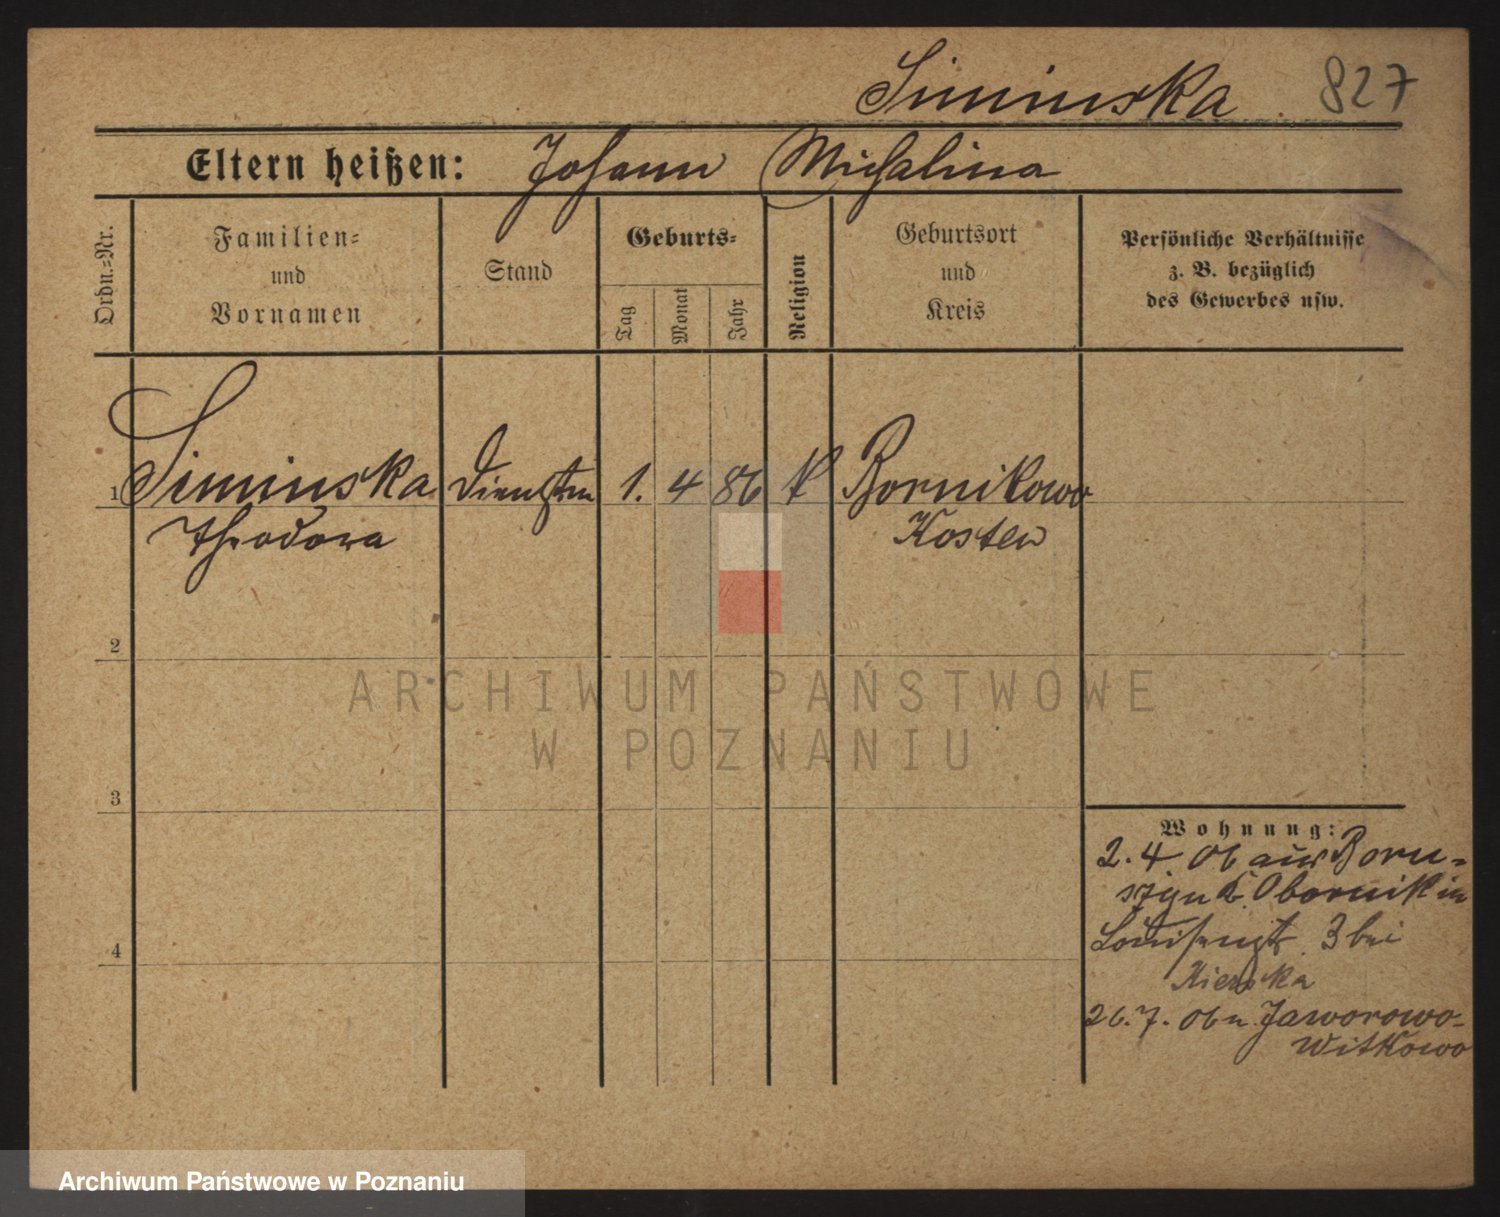 Siminska 827
Eltern heißen: Johann Michalina
Ordn.=Nr.
Familien=
und
Vornamen
Stand
Geburts=
Tag
Monat
Jahr
Religion
Geburtsort
und
Kreis
Persönliche Verhältnisse
z. B. bezüglich
des Gewerbes usw.
1 Siminska Dienstm 1. 4 86 k Bornikowo
Theodora Kosten
2
3
4
Wohnung:
2. 4. 06 aus Boru-
szyn K. Obornik in
Louisenstr. 3 bei
Kierska
26. 7. 06 n. Jaworowo-
Witkowo
ARCHIWUM PAŃSTWOWE
W POZNANIU
Archiwum Państwowe w Poznaniu